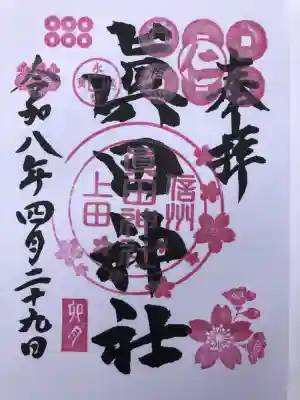 奉拝
眞田神社
信州
眞田神社
上田
卯月
令和八年四月二十九日